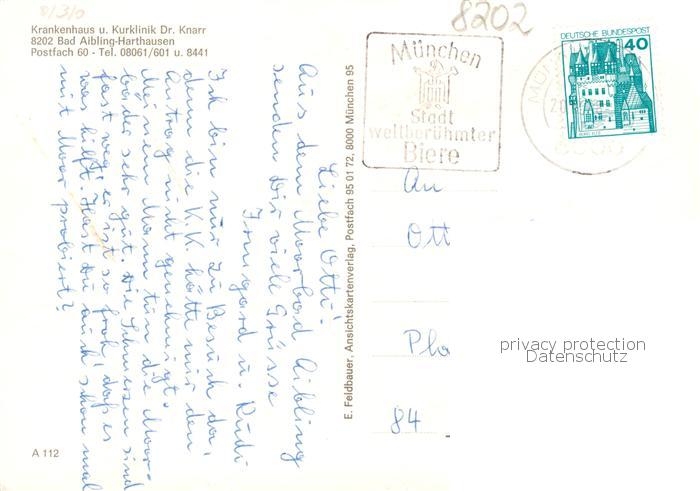 8/3/0
8202
Krankenhaus u. Kurklinik Dr. Knarr
8202 Bad Aibling-Harthausen
Postfach 60 - Tel. 08061/601 u. 8441
München
Stadt
weltberühmter
Biere
DEUTSCHE BUNDESPOST
40
Liebe Otti!
Aus dem Moorbad Aibling
senden Dir viele Grüsse
Irmgard u. Rudi
Ich bin nur zu Besuch da,
denn die K.K. hätte mir den
Antrag nicht genehmigt.
Meinem Mann tun die Moor-
bäder sehr gut. Die Schmerzen sind
fast weg, er ist so froh, daß es
was hilft. Hast Du auch schon mal
mit Moor probiert?
E. Feldbauer, Ansichtskartenverlag, Postfach 95 01 72, 8000 München 95
An
Ott
Pla
84
privacy protection
Datenschutz
A 112